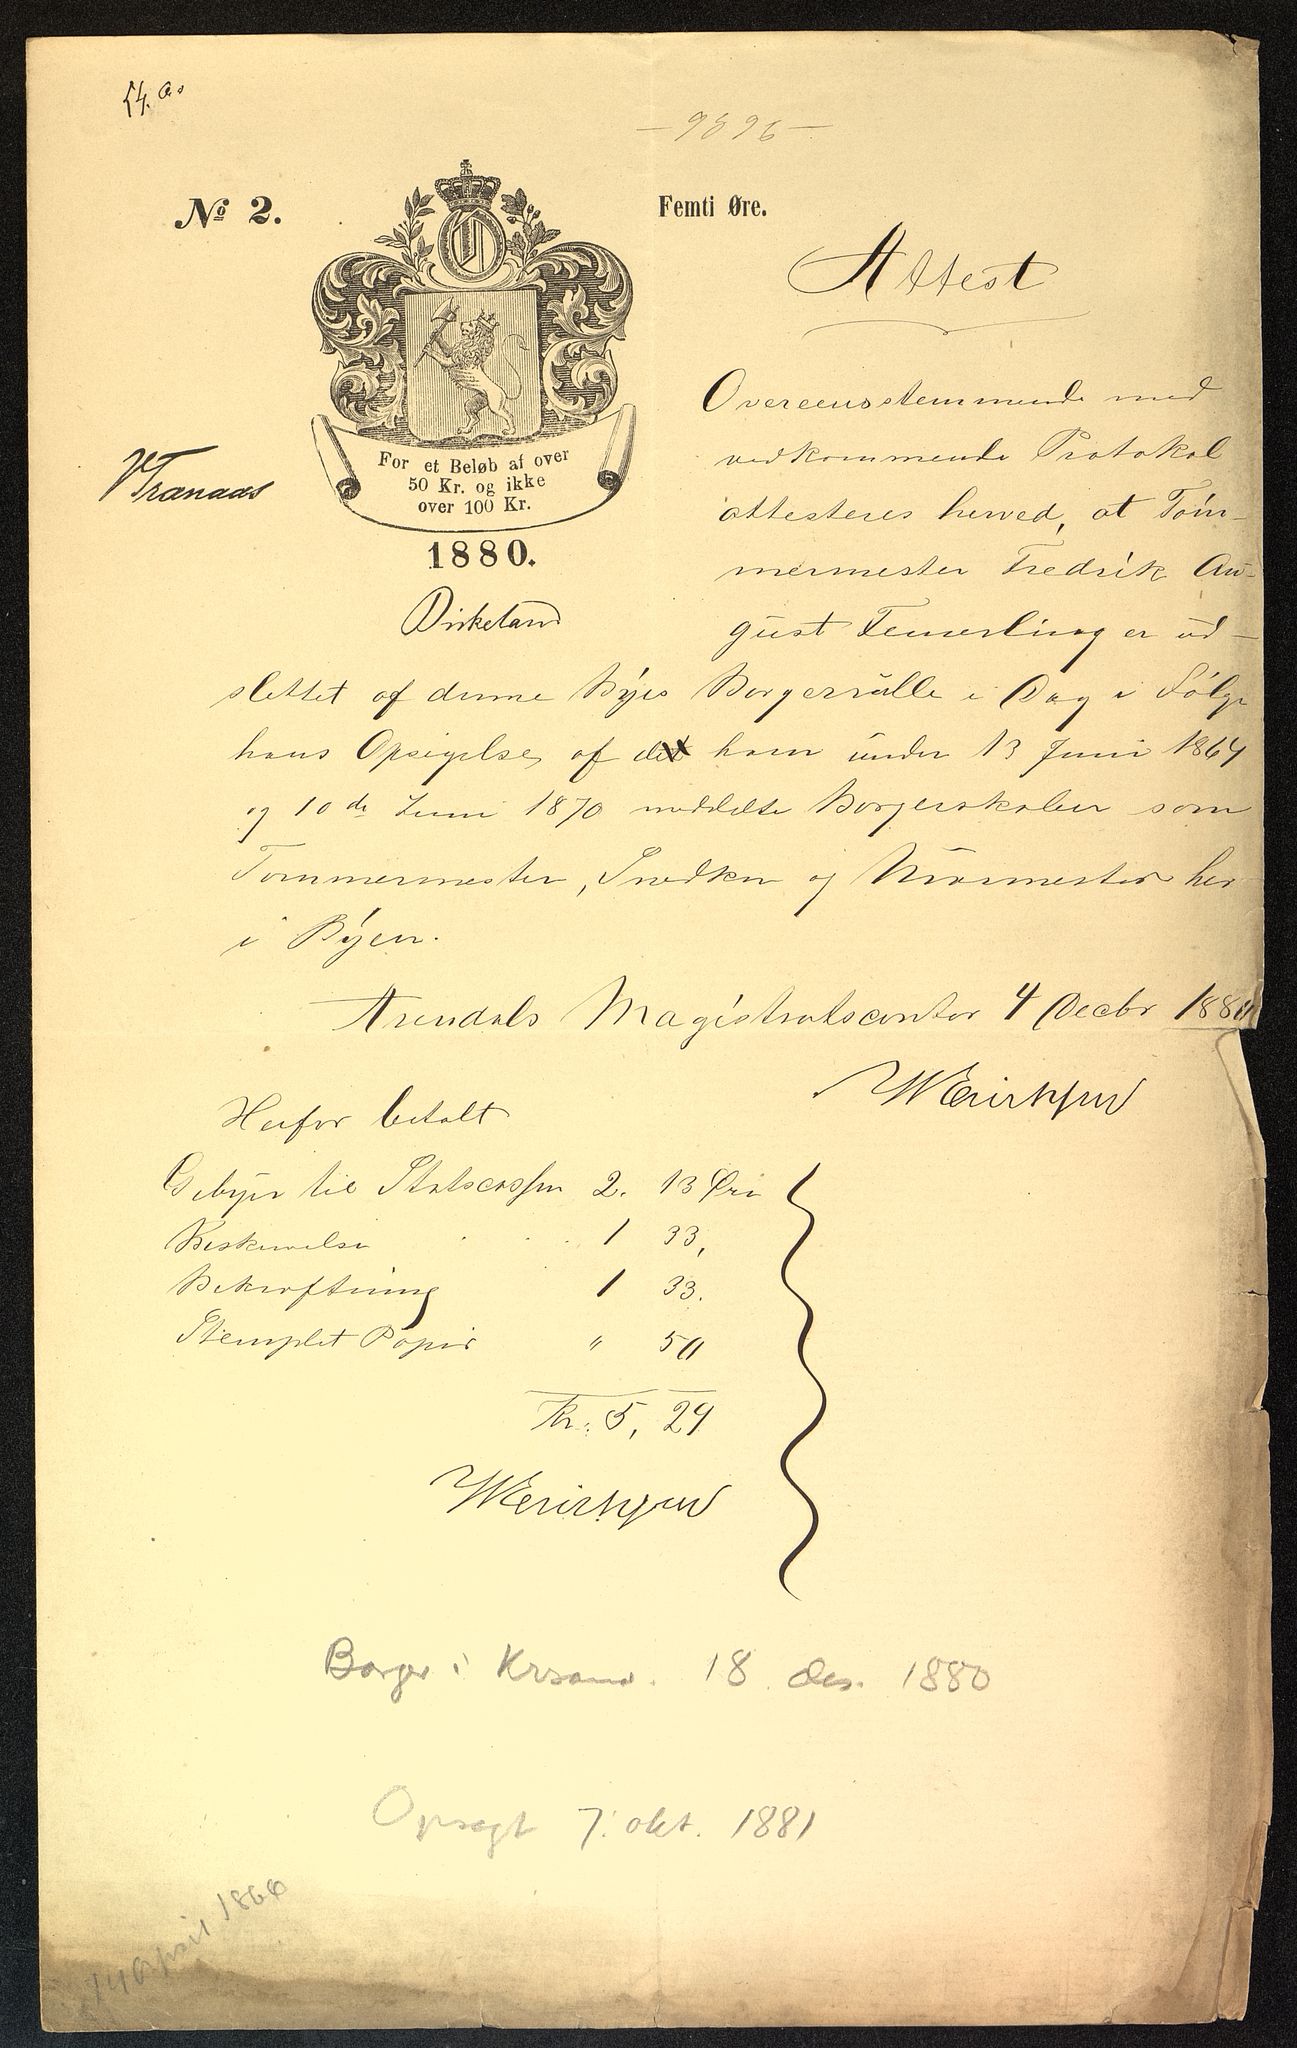 - 9896 -
No 2.
Femti Øre.
Attest
For et Beløb af over
50 Kr. og ikke
over 100 Kr.
1880.
VTranaas
Birkeland
Overeensstemmende med
vedkommende Protokol
attesteres herved, at Töm-
mermester Fredrik Au-
gust Temerling er ud-
slettet af denne Byes Borgerrulle i Dag i Følge
hans Opsigelse af det ham under 13 Juni 1864
og 10de Juni 1870 meddelte Borgerskaber som
Tømmermester, Snedker og Muurmester her
i Byen.
Arendals Magistratscontor 4 Decbr 1880
Herfor betalt
Gebyr til Statscassen 2. 13 Øre
Beskrivelse 1 33,
Bekræftning 1 33.
Stemplet Papir " 50
Kr. 5, 29
Borger i Krsand. 18 des. 1880
Opsagt 7. okt. 1881
14 April 1866